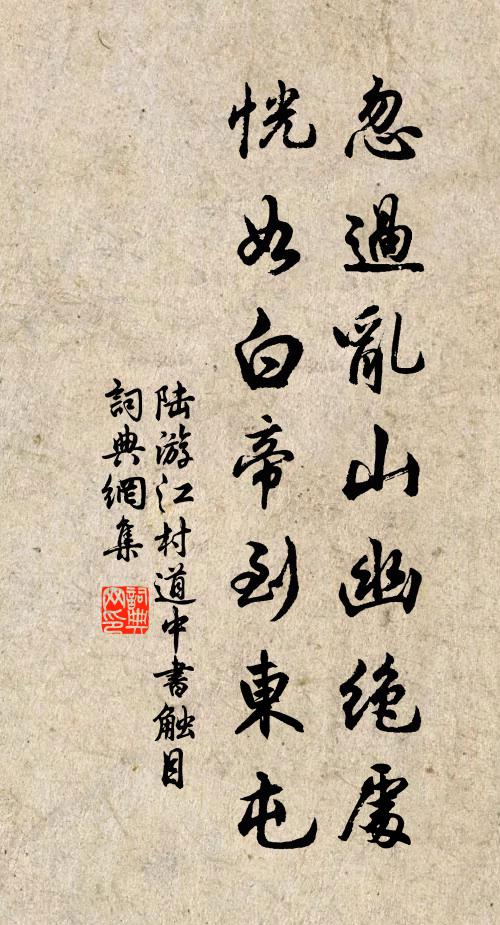 忽過亂山幽絶處
恍如白帝到東屯
陆游江村道中書触目
詞典網集
詞典网印